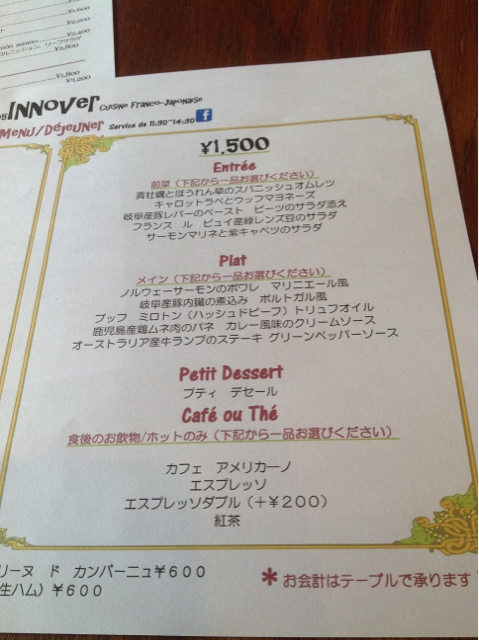 ¥1,600
¥2,400
¥2,800
¥1,800
¥1,200
INNOVer Cuisine Franco-Japonaise
Menu/Déjeuner Service de 11:30~14:30 f
¥1,500
Entrée
前菜（下記から一品お選びください）
真牡蠣とほうれん草のスパニッシュオムレツ
キャロットラペとウッフマヨネーズ
岐阜産豚レバーのペースト　ビーツのサラダ添え
フランス　ル　ピュイ産緑レンズ豆のサラダ
サーモンマリネと紫キャベツのサラダ
Plat
メイン（下記から一品お選びください）
ノルウェーサーモンのポワレ　マリニエール風
岐阜産豚内臓の煮込み　ポルトガル風
ブッフ　ミロトン（ハッシュドビーフ）トリュフオイル
鹿児島産鶏ムネ肉のパネ　カレー風味のクリームソース
オーストラリア産牛ランプのステーキ グリーンペッパーソース
Petit Dessert
プティ　デセール
Café ou Thé
食後のお飲物/ホットのみ（下記から一品お選びください）
カフェ　アメリカーノ
エスプレッソ
エスプレッソダブル（＋￥２００）
紅茶
リーヌ　ド　カンパーニュ￥６００
生ハム）￥６００
* お会計はテーブルで承ります